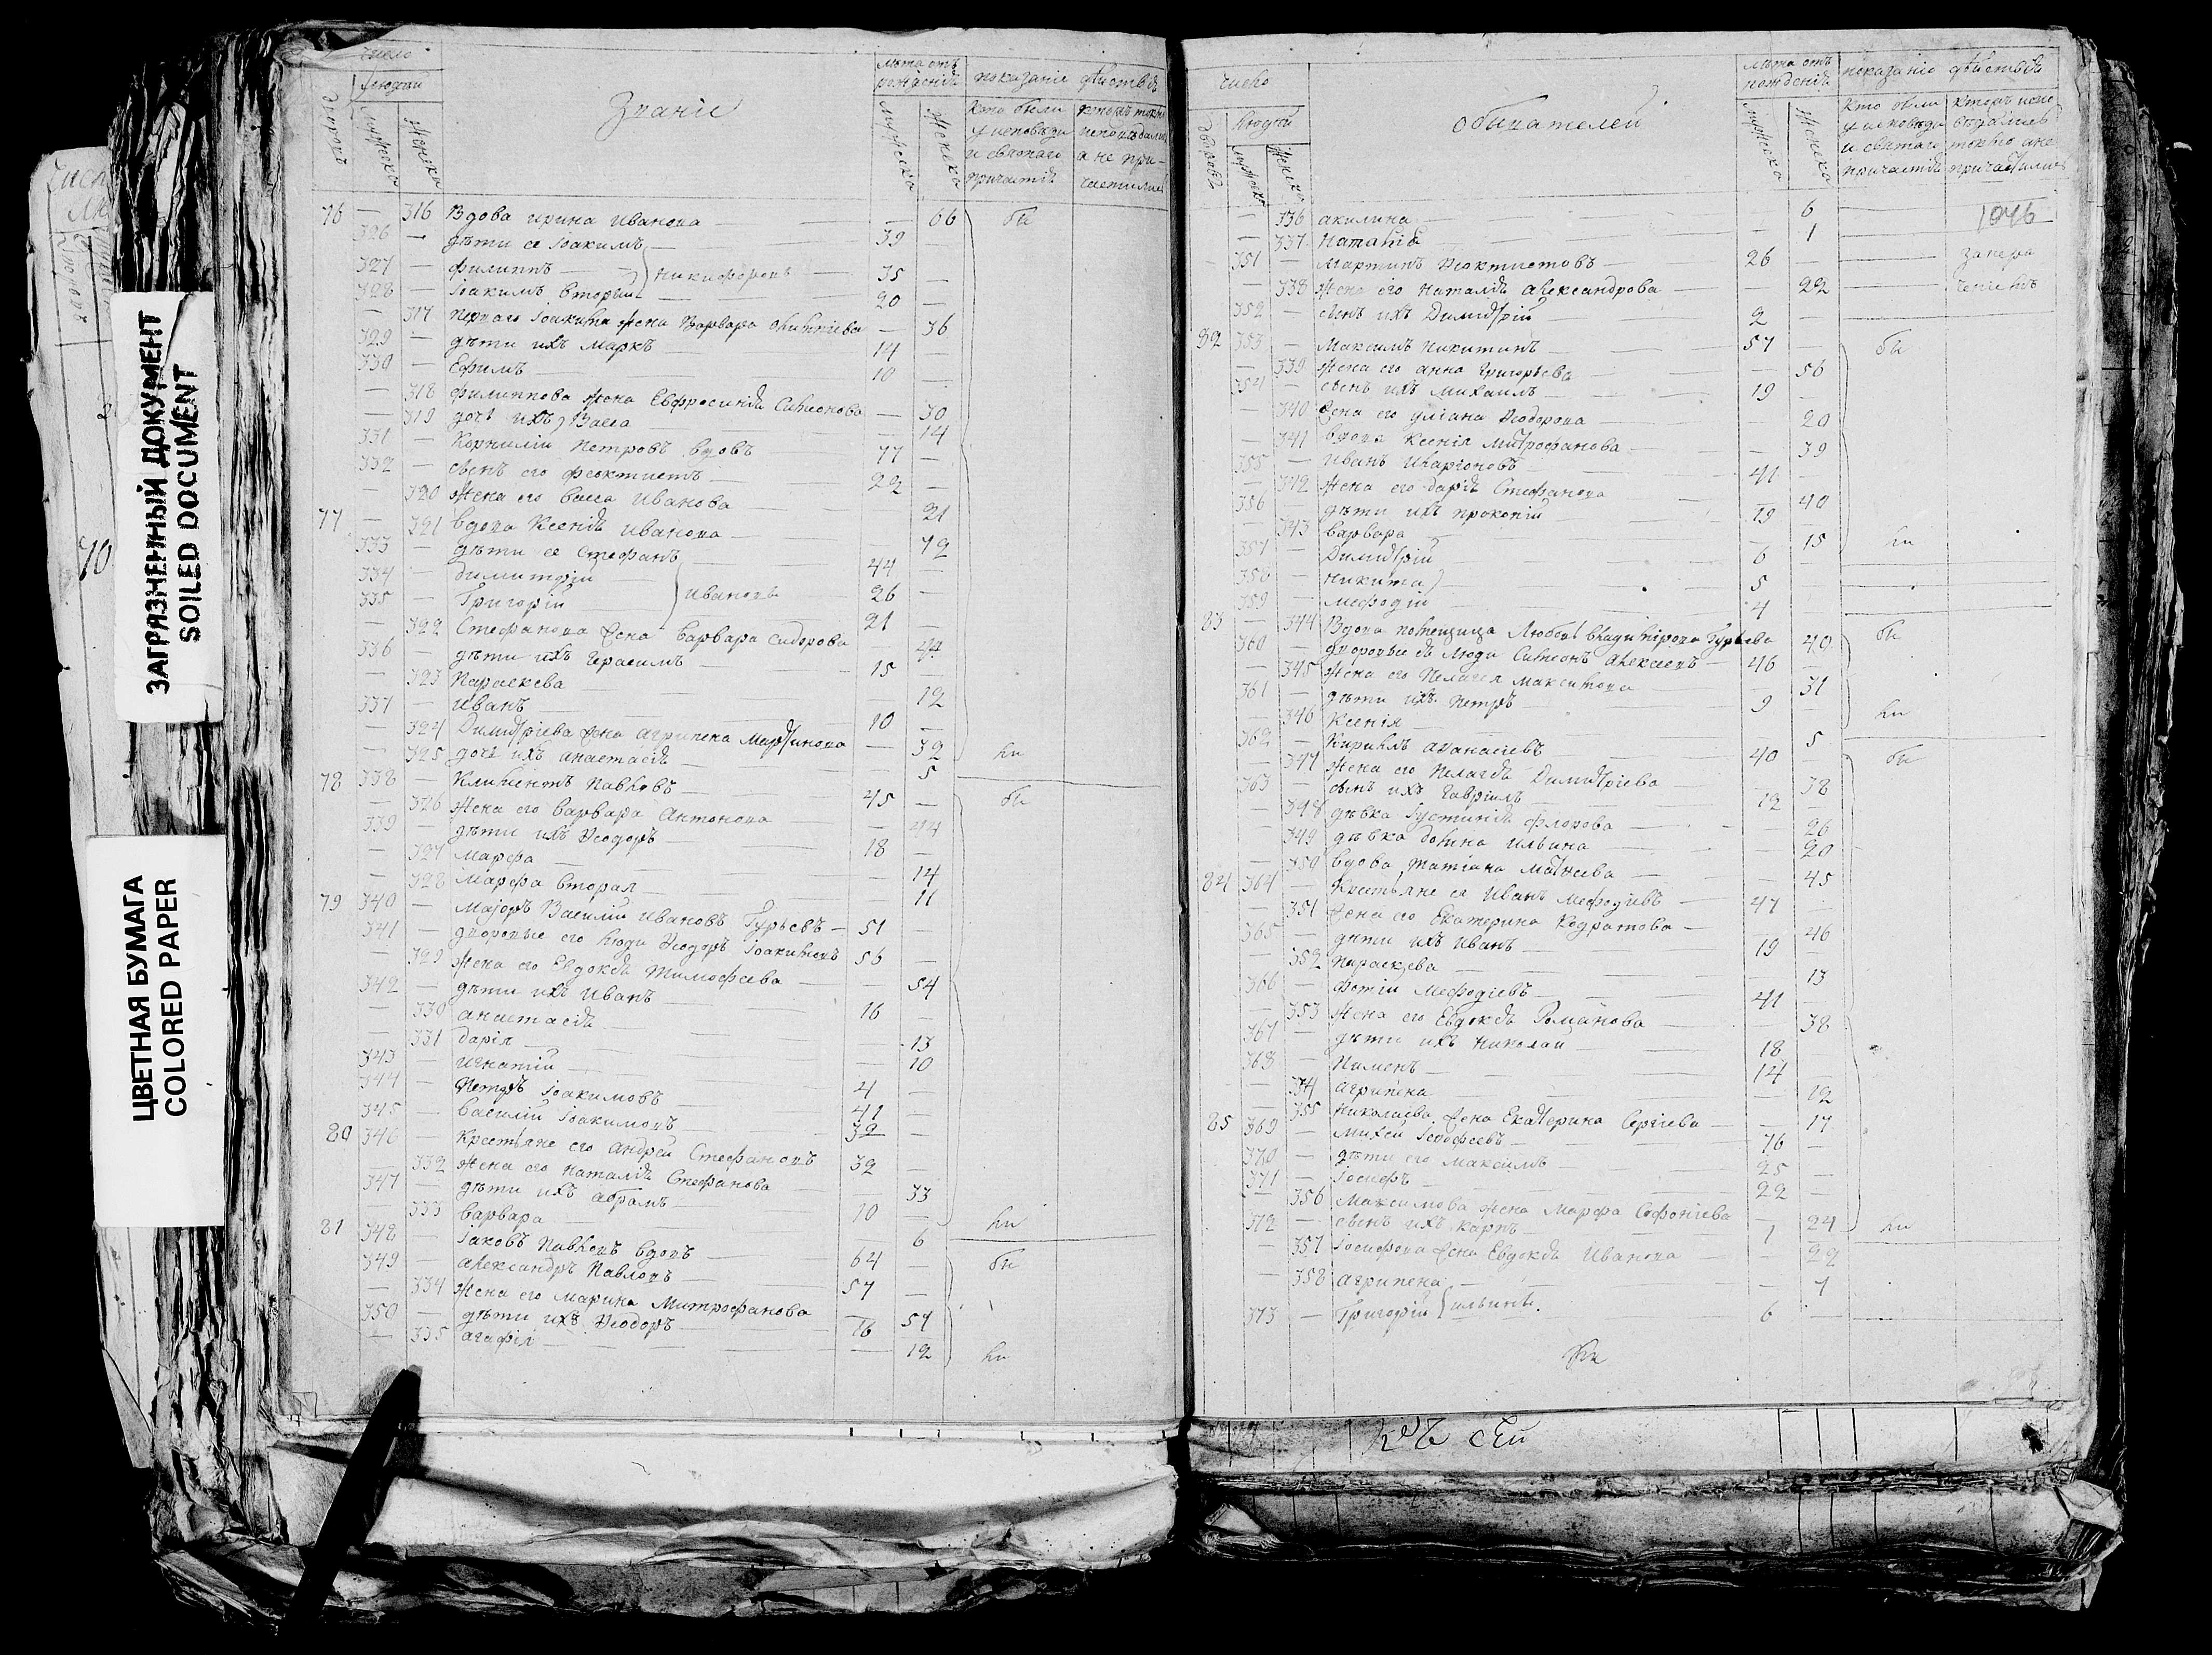 ЗАГРЯЗНЕННЫЙ ДОКУМЕНТ
SOILED DOCUMENT
ЦВЕТНАЯ БУМАГА
COLORED PAPER
число
людей
дворовъ
мужеска
женска
Званіе
лѣта отъ рожденія
мужеска
женска
показаніе дѣйствія
Кто были у исповѣди и святаго причастія
76 — 316 Вдова ирина Иванова — — 66 бы
326 — дѣти ее Іоакимъ — 39 —
327 — филиппъ — никифоровы — 35 —
328 — Іоакимъ вторый — 20 —
— 317 перваго Іоакима жена Варвара — 36
329 — дѣти ихъ Маркъ — 14 —
330 — Ефимъ — 10 —
— 318 филиппова жена Евфросинія Симеонова — 30
— 319 дочь ихъ Васса — 14
331 — Корнилій Петровъ вдовъ 77 —
332 — сынъ его феоктистъ — 22 —
— 320 жена его васса Иванова — 21
77 — 321 вдова Ксенія Иванова — 72
333 — дѣти ее Стефанъ — 44 —
334 — димитрій — Ивановы 26 —
335 — Григорій — 21 —
— 322 Стефанова жена варвара Сидорова — 44
336 — дѣти ихъ Герасимъ — 15 —
— 323 Параскева — 12
337 — Иванъ — 10 —
— 324 Димитріева жена агрипена Мартинова — 32
— 325 дочь ихъ анастасія — 5 ли
78 338 — Климентъ Павловъ — 45 — бы
— 326 жена его варвара Антонова — 44
339 — дѣти ихъ Ѳеодоръ — 18 —
— 327 Марфа — 14
— 328 Марфа вторая — 11
79 340 — Маіоръ Василій Ивановъ Гурьевъ — 51 —
341 — дворовые его люди Ѳеодоръ Іоакимовъ 56 —
— 329 жена его Евдокія Тимофеева — 54
342 — дѣти ихъ Иванъ — 16 —
— 330 анастасія — 13
— 331 дарія — 10
343 — игнатій — 4 —
344 — Петръ Іоакимовъ — 41 —
345 — василій Іоакимовъ — 32 —
80 346 — Крестьяне его андрей Стефановъ 32 —
— 332 жена его наталія Стефанова — 33
347 — дѣти ихъ абрамъ — 10 —
— 333 варвара — 6 ли
81 348 — Іаковъ Павловъ вдовъ — 64 — бы
349 — александръ Павловъ — 57 —
— 334 жена его марина Митрофанова — 57
350 — дѣти ихъ Ѳеодоръ — 16 —
— 335 агафія — — 12 ли
число
людей
дворовъ
мужеска
женска
обитателей
лѣта отъ рожденія
мужеска
женска
показаніе дѣйствія
Кто были у исповѣди и святаго причастія
— 336 акилина — 6 — 1046
— 337 наталія — 1
351 — мартинъ Ѳеоктистовъ — 26 —
— 338 жена его наталія александрова — 22
352 — сынъ ихъ Димитрій — 2 —
82 353 — Максимъ никитинъ — 57 — бы
— 339 жена его анна Григорьева — 56
354 — сынъ ихъ михаилъ — 19 —
— 340 жена его уліана Ѳеодорова — 20
— 341 вдова Ксенія митрофанова — 39
355 — Иванъ Иларіоновъ — 41 —
— 342 жена его дарія Стефанова — 40
356 — дѣти ихъ прокопій — 19 —
— 343 варвара — 15 ли
357 — Димитрій — 6 —
358 — никита — 5 —
359 — мефодій — 4 —
83 — 344 Вдова помещица Любовь владимірова Гурьева 40 бы
360 — дворовые ея люди Симеонъ алексеевъ 46 —
— 345 жена его Пелагея максимова — 31
361 — дѣти ихъ петръ — 9 —
— 346 Ксенія — 5 ли
362 — Кирилъ аѳанасіевъ — 40 — бы
— 347 жена его Пелагія Димитріева — 38
363 — сынъ ихъ Гавріилъ — 12 —
— 348 дѣвка Іустинія флорова — 26
— 349 дѣвка домна Ильина — 20
— 350 вдова татіана матѳеева — 45
84 364 — Крестьяне ея Иванъ мефодіевъ — 47 —
— 351 жена его Екатерина Кодратова — 46
365 — дѣти ихъ Иванъ — 19 —
— 352 Параскева — 13
366 — фотій мефодіевъ — 41 —
— 353 жена его Евдокія Романова — 38
367 — дѣти ихъ николай — 18 —
368 — Пименъ — 14 —
— 354 агрипена — 12
— 355 николаева жена Екатерина Сергіева — 17
85 369 — михей — 76 —
370 — дѣти его максимъ — 25 —
371 — Іосифъ — 22 —
— 356 максимова жена марфа Софоніева — 24
372 — сынъ ихъ карпъ — 1 — ли
— 357 Іосифова жена Евдокія Иванова — 22
— 358 агрипена — 7
373 — Григорій ильины. 6 —